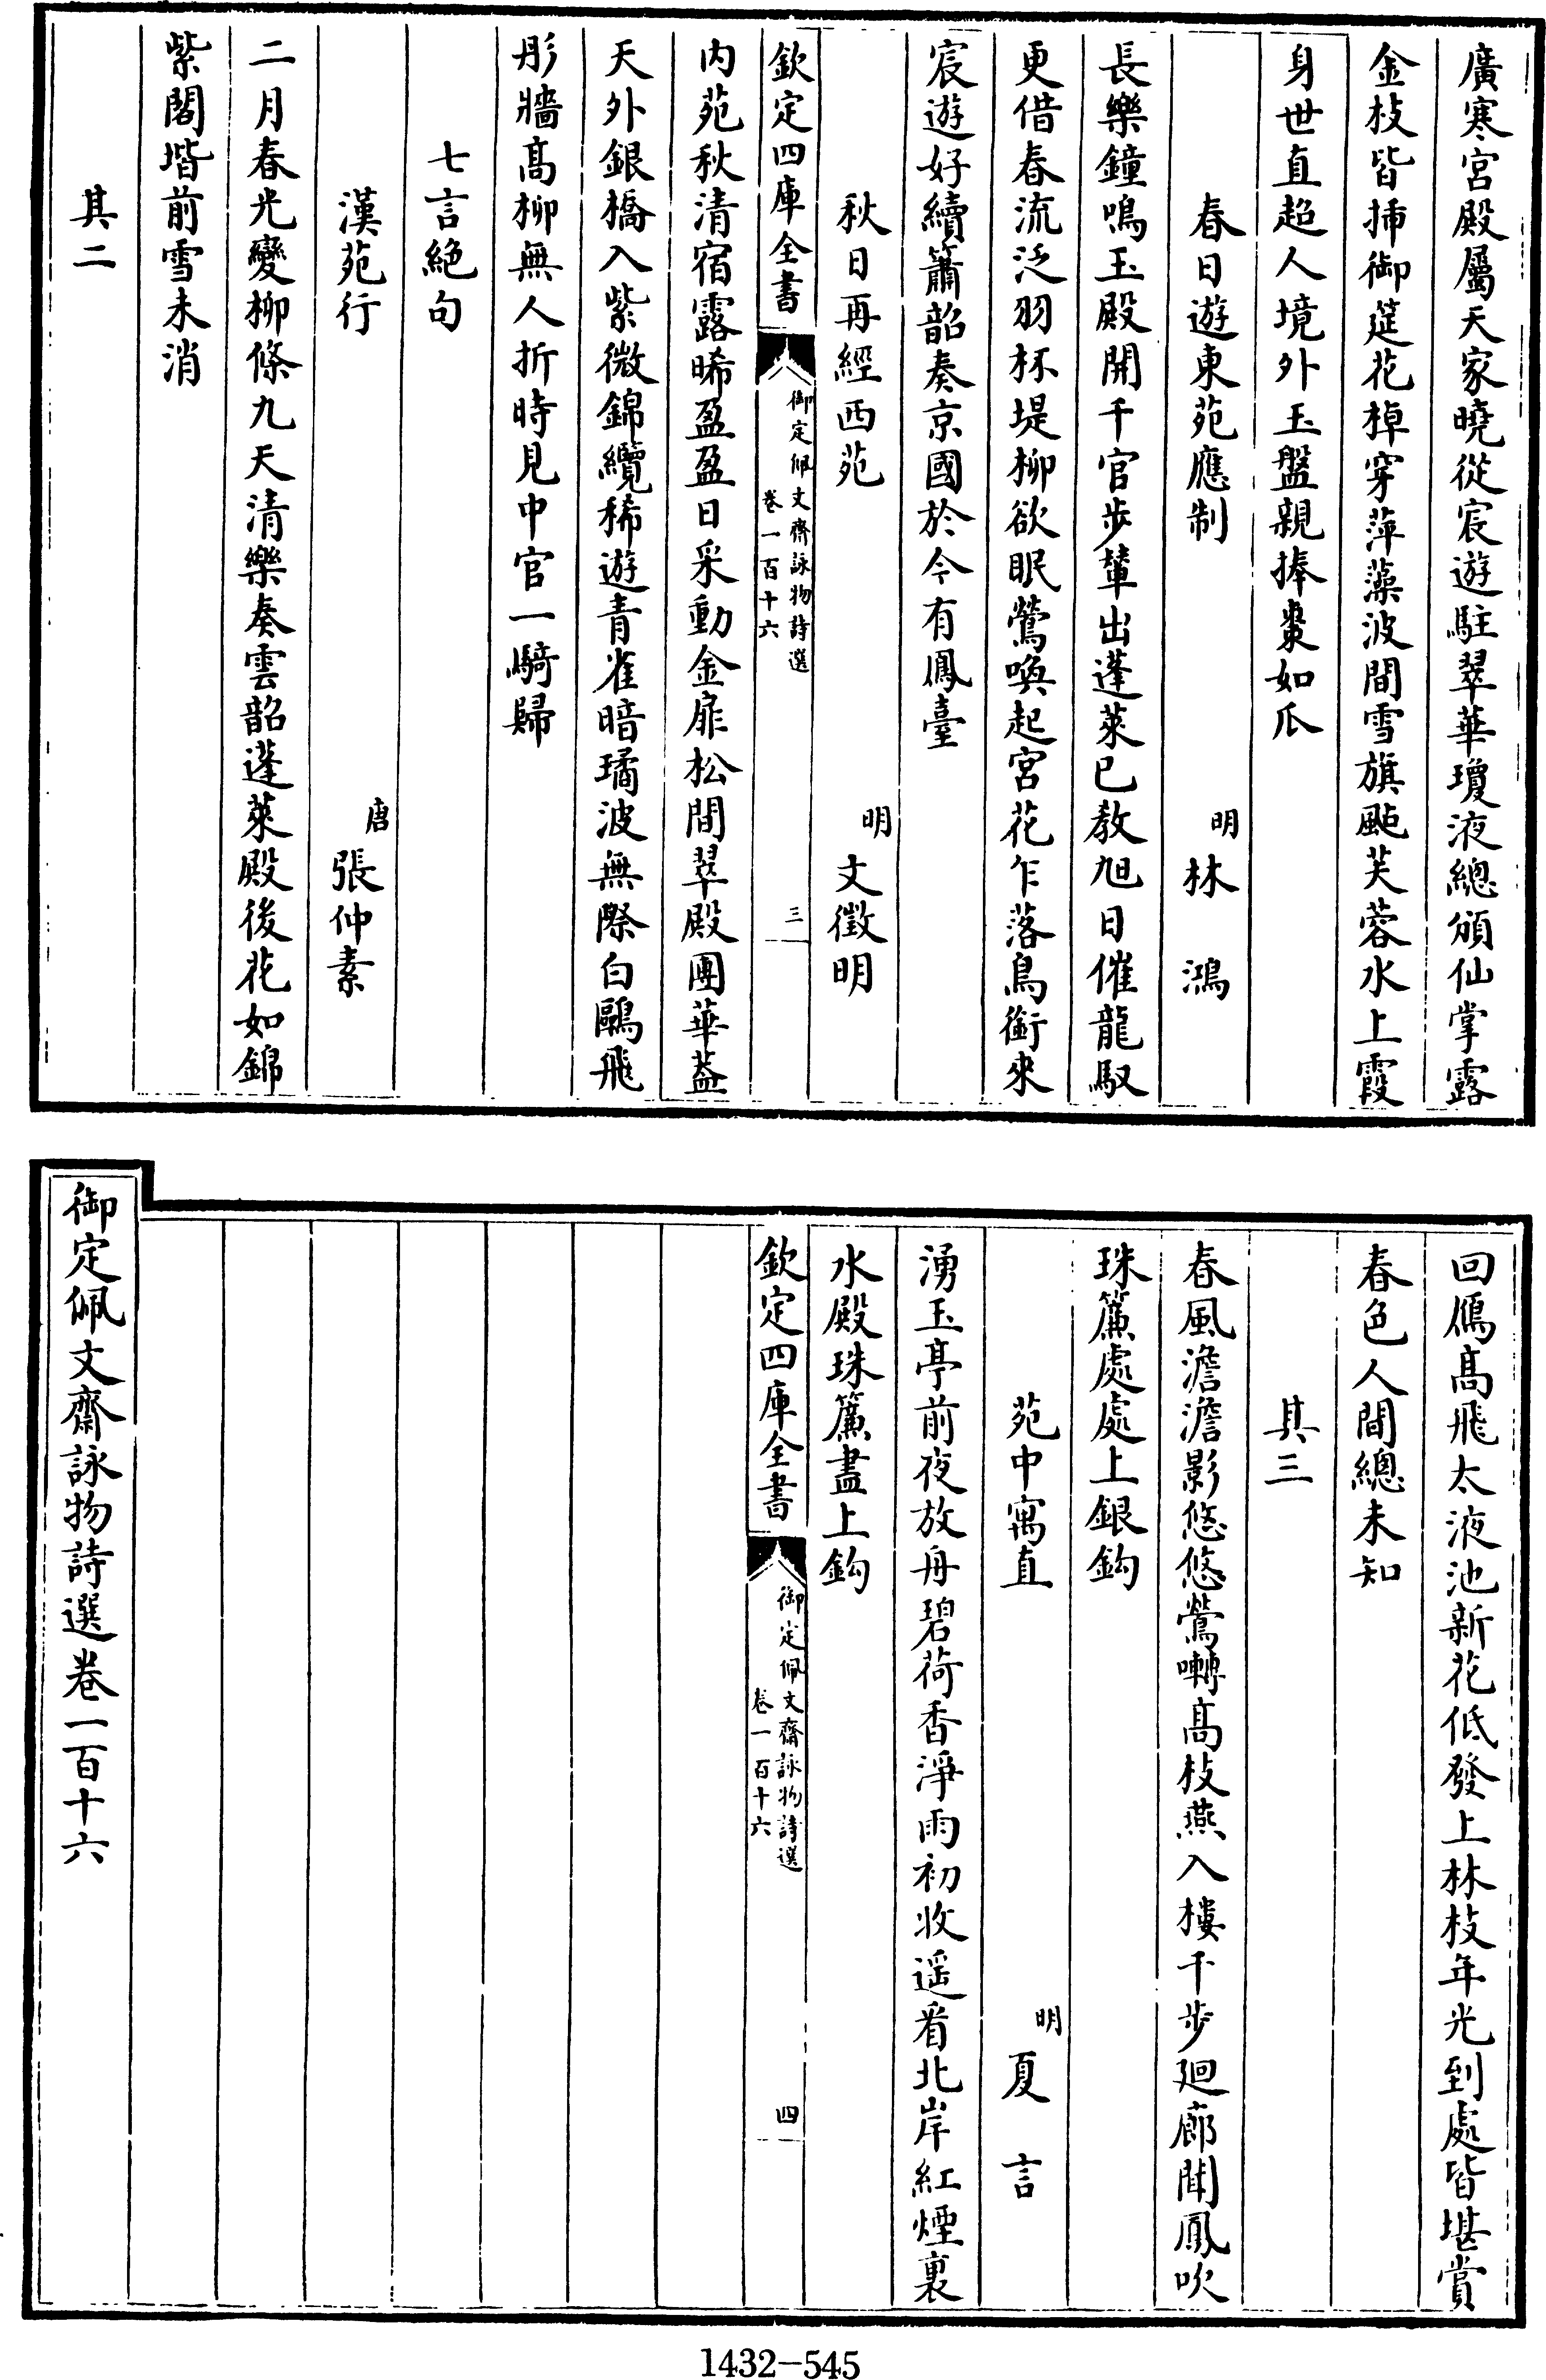 廣寒宮殿屬天家曉從宸遊駐翠華瓊液總頒仙掌露
金枝皆揷御筵花棹穿萍藻波間雪旗颭芙蓉水上霞
身世直超人境外玉盤親捧棗如瓜
春日遊東苑應制 明 林鴻
長樂鐘鳴玉殿開千官步輦出蓬萊已教旭日催龍馭
更借春流泛羽杯堤柳欲眠鶯喚起宮花乍落鳥銜來
宸遊好續簫韶奏京國於今有鳳臺
秋日再經西苑 明 文徵明
欽定四庫全書 御定佩文齋詠物詩選 卷一百十六 三
内苑秋清宿露晞盈盈日采動金扉松間翠殿團華蓋
天外銀橋入紫微錦纜稀遊青雀暗璚波無際白鷗飛
彤牆髙柳無人折時見中官一騎歸
七言絶句
漢苑行 唐 張仲素
二月春光變柳條九天清樂奏雲韶蓬萊殿後花如錦
紫閣堦前雪未消
其二
回鴈髙飛太液池新花低發上林枝年光到處皆堪賞
春色人間總未知
其三
春風澹澹影悠悠鶯囀髙枝燕入樓千步廻廊聞鳳吹
珠簾處處上銀鈎
苑中寓直 明 夏言
湧玉亭前夜放舟碧荷香淨雨初收遥看北岸紅煙裏
水殿珠簾盡上鈎
欽定四庫全書 御定佩文齋詠物詩選 卷一百十六 四
御定佩文齋詠物詩選卷一百十六
1432-545